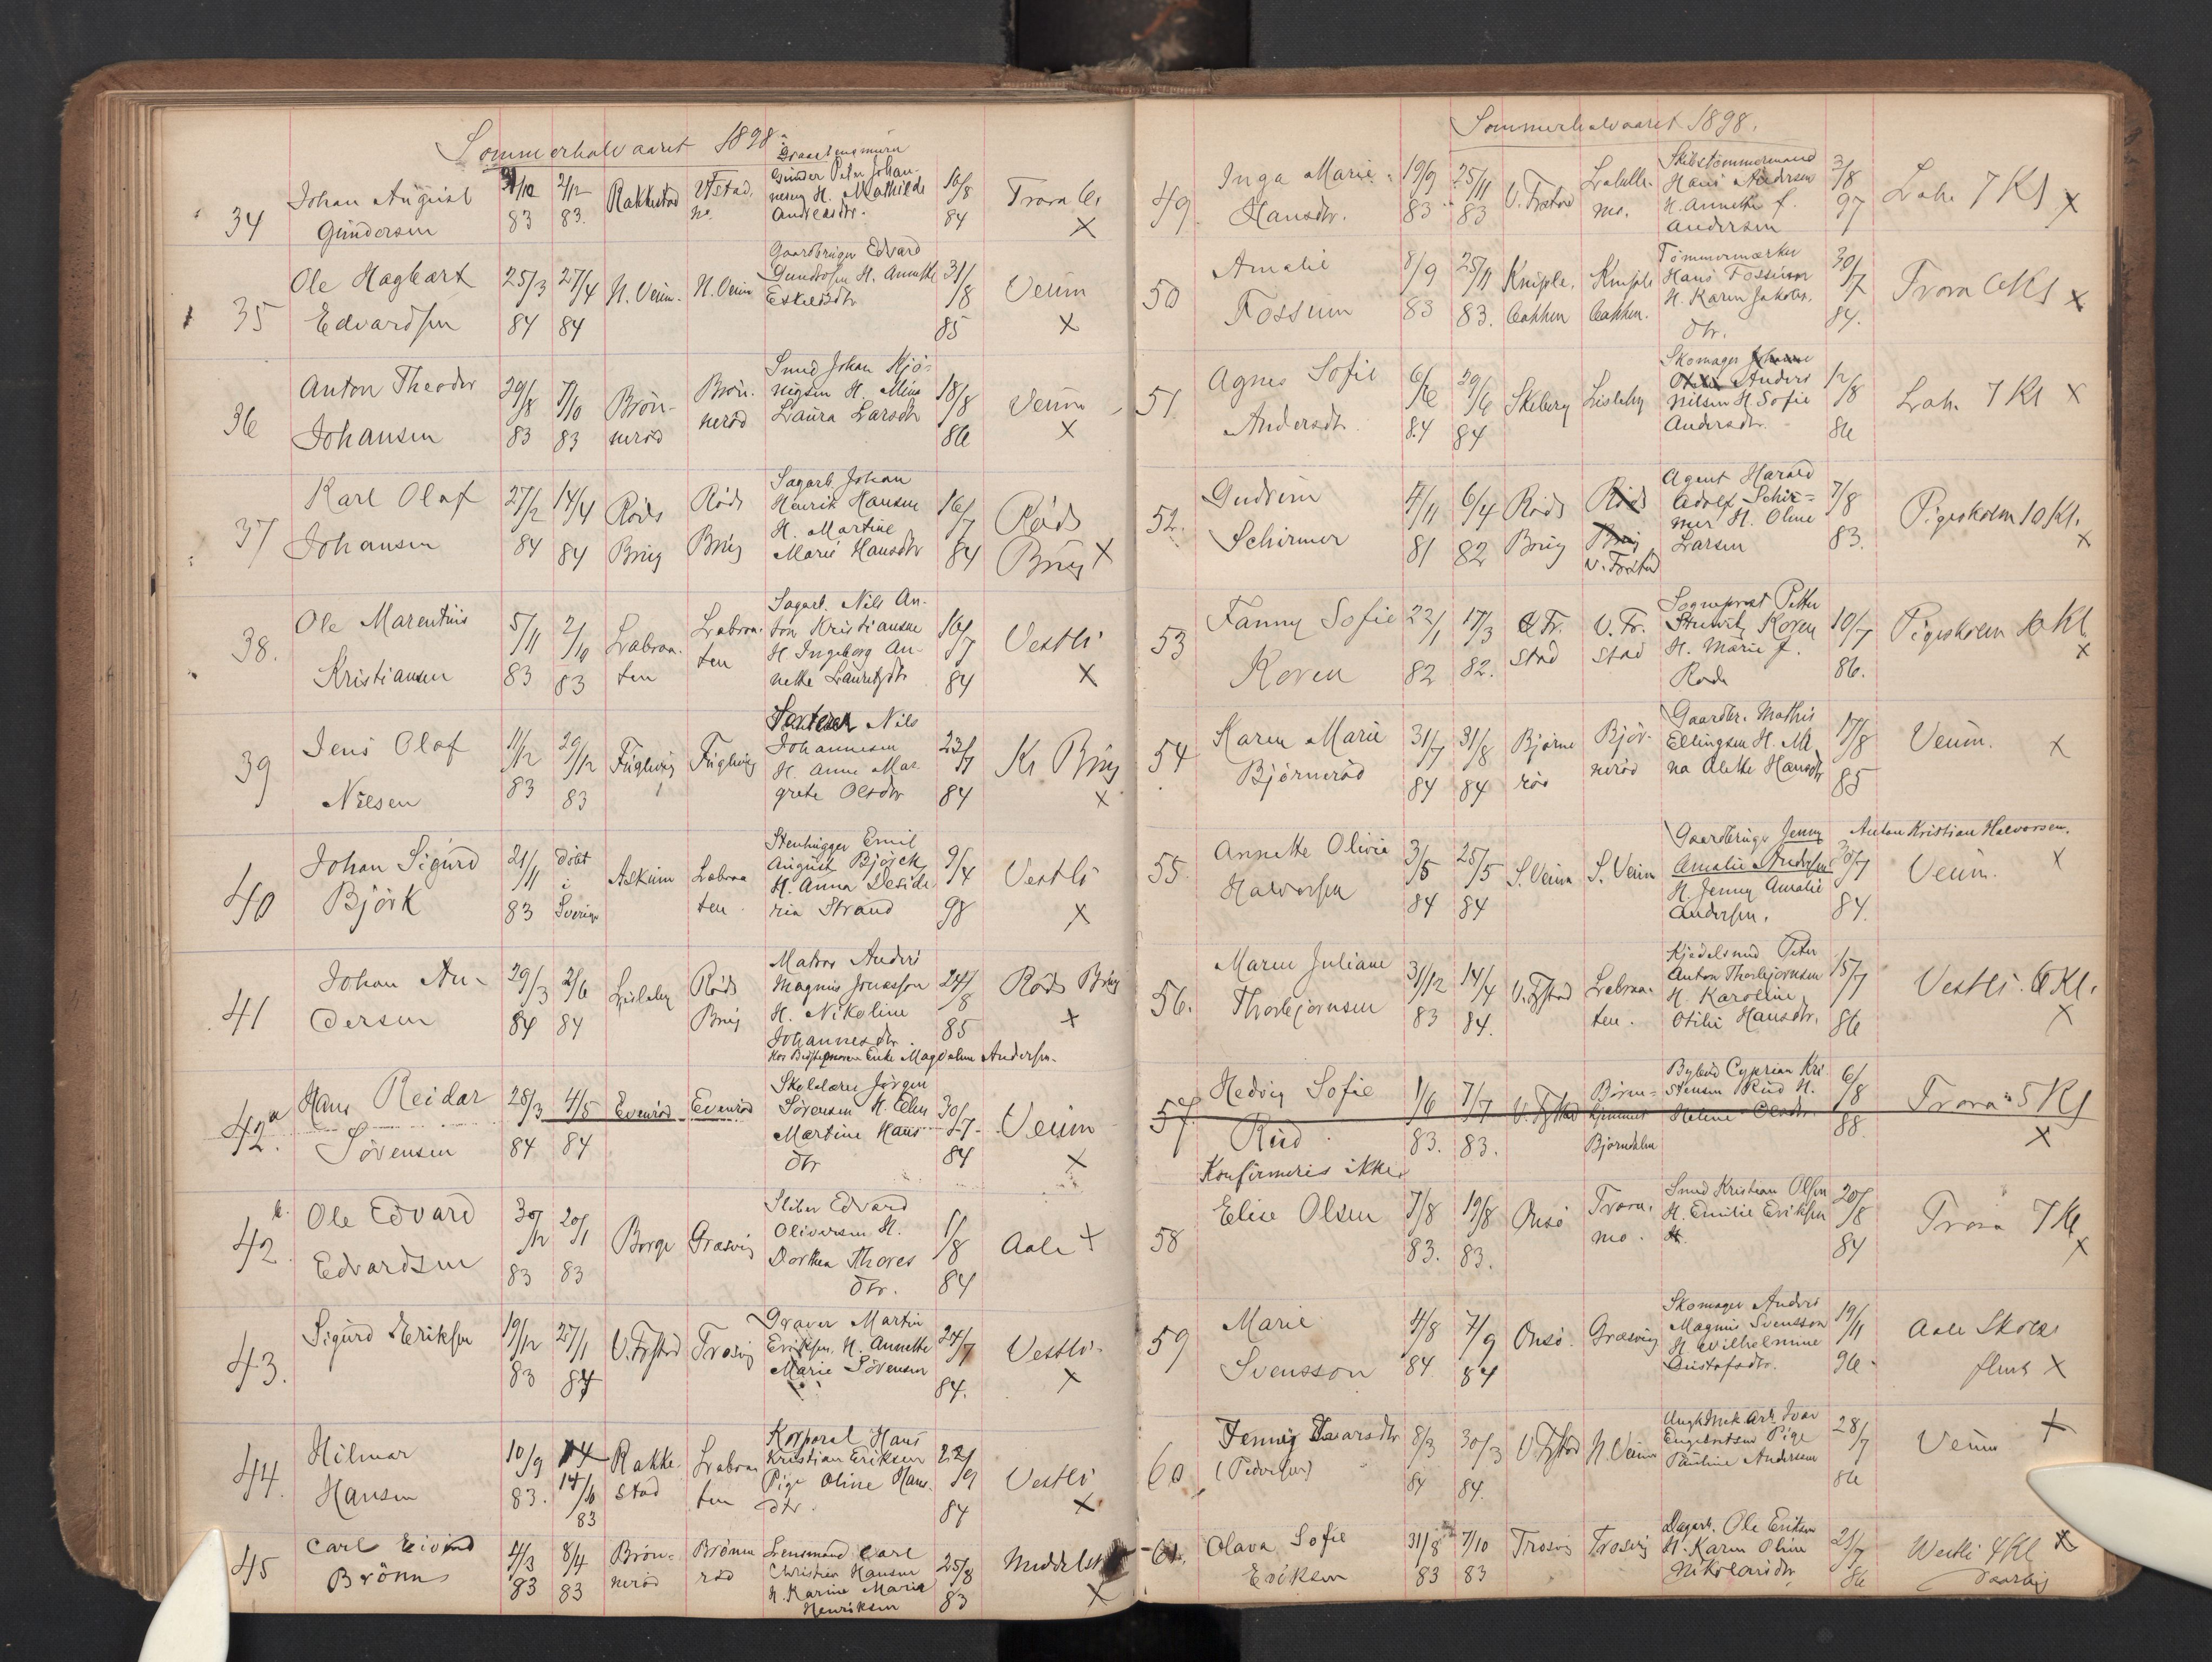 Sommerhalvaaret 1898
34 Johan August Gundersen 31/12 83 2/12 83. Rakkestad V. Fstad. mo.
Gunder Peter Johannesen H. Mathilde Andreasdtr. 16/8 84 Trara 6. X
35 Ole Hagbart Edvardsen 25/3 84 27/4 84 N. Veum. N. Veum
Gaardbruger Edvard Gundersen H. Annette Eskildsdtr 31/8 85 Veum X
36 Anton Theodor Johansen 29/8 83 7/10 83 Brönnerød Brönnerød
Smed Johan Kjönigsen H. Mina Laura Larsdtr 18/8 86 Veum X
37 Karl Olaf Johansen 27/2 84 14/4 84 Røds Brug Røds Brug
Sagarb. Johan Henrik Hansen H. Martine Marie Hansdtr 16/7 84 Røds Brug X
38. Ole Marentius Kristiansen 5/11 83 2/10 83 Labraaten Labraaten
Sagarb. Nils Anton Kristiansen H Ingeborg Annette Lauritzdtr 16/7 84 Vestli X
39 Jens Olaf Nilsen 11/12 83 29/12 83 Fuglevig Fuglevig
Nils Johannesen H. Anne Margrete Olsdtr 23/7 84 Kr Brug X
40 Johan Sigurd Björk 21/11 83 Döbt i Sverige Askim Labraaten
Stenhugger Emil August Björck H. Anna Desideria Strand 9/4 98 Vestli X
41 Johan Andersen 29/3 84 2/6 84 Lisleby Røds Brug
Matros Anders Magnus Jonasson H. Nikoline Johannesdtr. 24/8 85 Røds Brug X
Hos Bedstemoren Enke Magdalene Andersen.
42a. Hans Reidar Sørensen 28/3 84 4/5 84 Evenrød Evenrød
Skolelærer Jørgen Sørensen H. Elen Martine Hansdtr 30/7 84 Veum X
42b. Ole Edvard Edvardsen 30/12 83 20/1 83 Borge Græsvig
Sliber Edvard Oliversen H. Dorthea Thoresdtr. 1/8 84 Aale X
43. Sigurd Eriksen 19/12 83 27/1 84 V. Fstad Trosvig
Graver Martin Eriksen. H. Annette Marie Sørensen 24/7 84. Vestli X
44. Hilmar Hansen 10/9 83. 14/10 83 Rakkestad Labraaten
Korporal Hans Kristian Eriksen Pige Oline Hansdtr. 22/9 84 Vestli X
45 Carl Eivind Brönn 4/3 83 8/4 83 Brönnerød Brönnerød
Lensmand Carl Christian Hansen H. Karine Marie Henriksen 25/8 83 Middelsk X
Sommerhalvaaret 1898.
49. Inga Marie Hansdtr. 19/9 83 25/11 83 V. Frstad Labellmo.
Skibstömmermand Hans Andersen H. Annette f. Andersen 3/8 97 Lah. 7 Kl X
50 Amalie Fossum 8/9 83 25/11 83. Kniple bakken Kniple bakken.
Tömmermærker Hans Fossum H. Karen Jakobsdtr. 30/7 84. Trara 6 Kl X
51 Agnes Sofie Andersdtr. 6/6 84 29/6 84 Skeberg Lisleby
Skomager Anders Nilsen H. Sofie Andersdtr. 12/8 86 Lah. 7 Kl X
52. Gudrun Schirmer 4/11 81 6/4 82 Røds Brug V. Frstad
Agent Harald Adolf Schirmer H. Oline Larsen 7/8 83. Pigeskolen 10 Kl. X
53 Fanny Sofie Koren 22/1 82 17/3 82. V. Fr. stad V. Fr. stad
Sogneprest Petter Koren H. Marie f. Rode 10/7 86. Pigeskolen 10 Kl. X
54 Karen Marie Björnerød 31/7 84 31/8 84 Björnerød Björnerød
Gaardbr. Mathis Ellingsen H. Mina Alette Hansdtr 17/8 85 Veum. X
55. Annette Olivia Halvorsen 3/5 84 25/5 84 S. Veum S. Veum
Gaardbruger Jenny Amalie Andersen Anton Kristian Halvorsen.
H. Jenny Amalie Andersen. 30/7 84. Veum. X
56. Maren Juliane Thorbjørnsen 31/12 83 14/4 84. V. Fstad Labraaten.
Kjedelsmed Peter Anton Thorbjørnsen H. Karoline Otilie Hansdtr. 15/7 86 Vestli. 6 Kl. X
57. Hedvig Sofie Rud 1/6 83. 7/7 83. V. Fstad Björndalen
Bybud Cyprian Kristensen Rud H. Helene Olsdtr. 6/8 88 Trara 5 Kl X
Konfirmeres ikke
58 Elise Olsen 7/8 83. 19/8 83. Onsö Traramo.
Smed Kristian Olsen H. Emilie Eriksen 20/8 84 Trara 7 Kl X
59 Marie Svensson 4/8 84 7/9 84 Onsö. Græsvig
Skomager Anders Magnus Svensson H. Wilhelmine Gustafsdtr. 19/11 96. Aale Skoles X
60 Jenny Ivarsdtr 8/3 84 30/3 84. V. Fstad N. Veum
Ungk. Arb. Ivar Engebretsen Pige Pauline Andersen 28/7 86 Veum X
61. Olava Sofie Eriksen 31/8 83 7/10 83 Trosvig Trosvig
Dagarb. Ole Eriksen H. Karen Oline Nikolaisdtr 25/7 86 Westli 4 Kl X
Daarlig